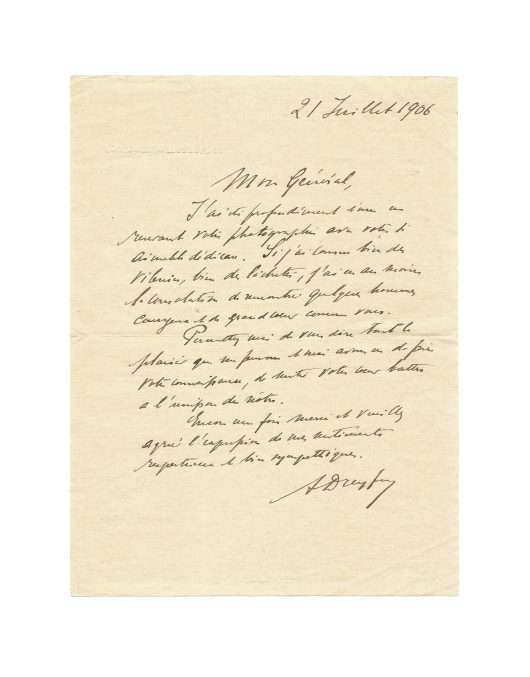 21 Juillet 1906
Mon Général,
J'ai été profondément ému en
recevant votre photographie avec votre si
aimable dédicace. Si j'ai connu bien des
vilenies, bien des lâchetés, j'ai eu au moins
la consolation de rencontrer quelques hommes
courageux et de grand coeur comme vous.
Permettez moi de vous dire tout le
plaisir que ma femme et moi avons eu de faire
votre connaissance, de sentir votre coeur battre
à l'unisson du nôtre.
Encore une fois merci et veuillez
agréer l'expression de mes sentiments
respectueux et bien sympathiques.
ADreyfus